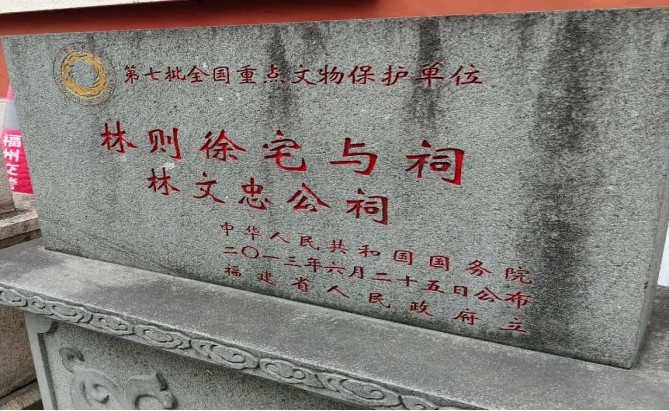 第七批全国重点文物保护单位
林则徐宅与祠
林文忠公祠
中华人民共和国国务院
二〇一三年六月二十五日公布
福建省人民政府立
福州交